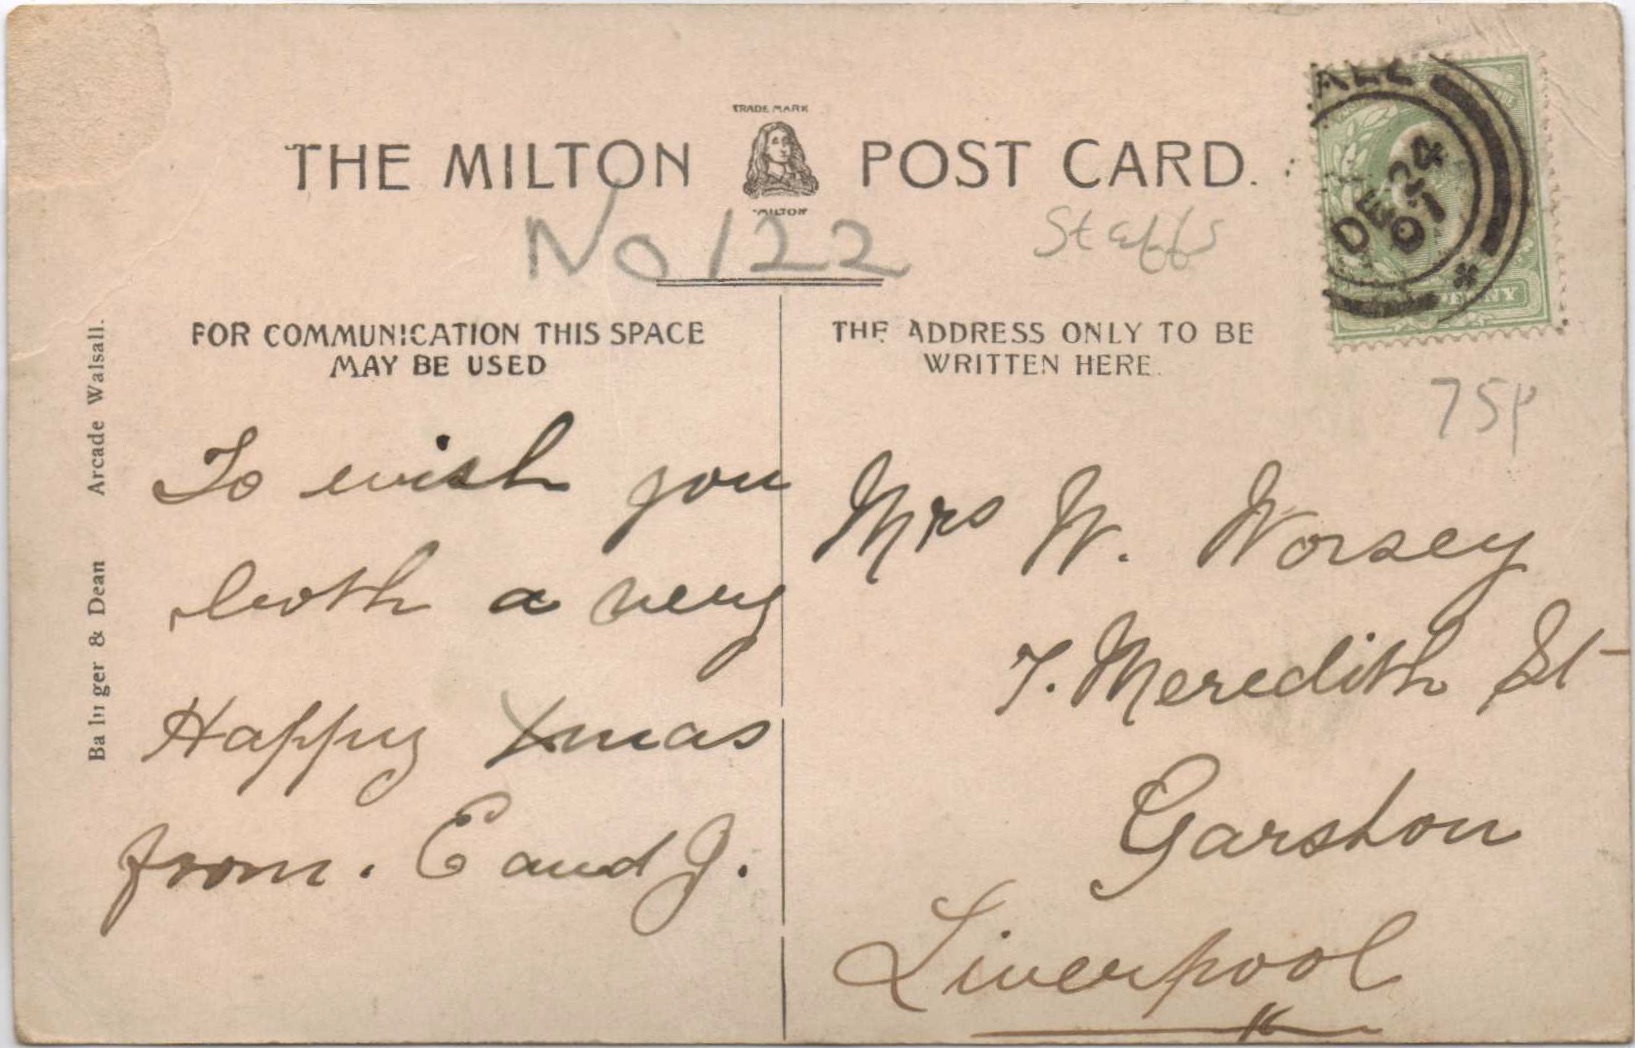 TRADE MARK
THE MILTON POST CARD.
"MILTON"
No 122
Staffs
ALL
DE 24
07
PENNY
75p
FOR COMMUNICATION THIS SPACE
MAY BE USED
THE ADDRESS ONLY TO BE
WRITTEN HERE.
Arcade Walsall.
& Dean
To wish you
both a very
Happy Xmas
from. E and J.
Mrs W. Worsey
7. Meredith St
Garston
Liverpool